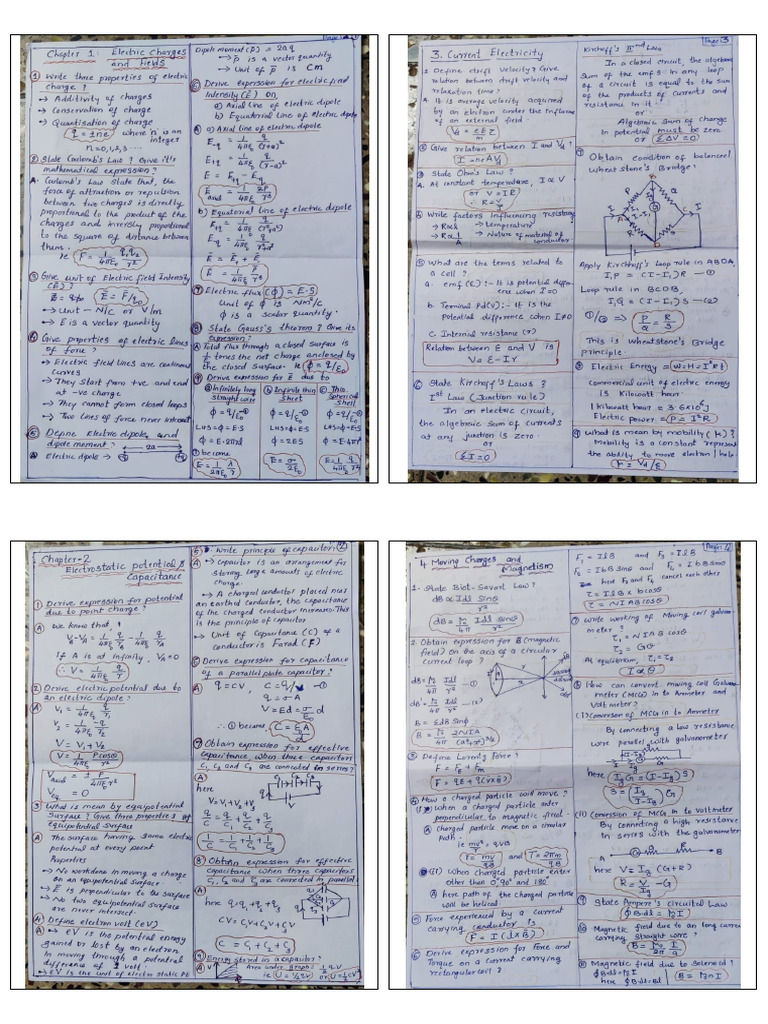 Page 1
Chapter 1: Electric Charges
and Fields
① Write three properties of electric
charge?
→ Additivity of charges
→ Conservation of charge
→ Quantisation of charge
q = ±ne where 'n' is an
integer
n=0,1,2,3...
② State Coulomb's Law? Give it's
mathematical expression?
A. Coulomb's Law state that, the
force of attraction or repulsion
between two charges is directly
proportional to the product of the
charges and inversly propotional
to the square of distance between
them.
ie F = 1/4πε₀ q₁q₂/r²
③ Give unit of Electric field Intensity
(E)?
E = F/q₀
→ Unit – N/c or V/m
→ E is a vector quantity
④ Give properties of electric lines
of force?
→ Electric field lines are continuous
curves
→ They start from +ve and end
at -ve charge
→ They cannot form closed loops
→ Two lines of force never intersect
⑤ Define Electric dipole and
dipole moment?
2a
Ⓐ Electric dipole →
Dipole moment (P) = 2aq
→ P is a vector quantity
→ Unit of P is Cm
⑥ Derive expression for electric field
Intensity (E) on,
a) Axial line of electric dipole
b) Equatorial line of Electric dipole
A a) Axial line of electric dipole
E-q = 1/4πε₀ q/(r+a)²
E+q = 1/4πε₀ q/(r-a)²
E = E+q – E-q
E = 1/4πε₀ 2P/r³
b) Equatorial line of electric dipole
E = E₁ + E₂
E = 1/4πε₀ P/r³
⑦ Electric flux (ϕ) = E·S
Unit of ϕ is Nm²/c
ϕ is a scalar quantity.
⑧ State Gauss's theorem? Give its
expression?
Ⓐ Total flux through a closed surface is
1/ε₀ times the net charge enclosed by
the closed surface. ie ϕ = q/ε₀
⑨ Derive expression for E due to
ⓐ Infinitely long straight wire
ϕ = q/ε₀ —①
LHS = ϕ = E·S
ϕ = E·2πrl
① become
E = 1/2πε₀ λ/r
ⓑ Infinite thin Sheet
ϕ = q/ε₀
LHS = ϕ = E·S
ϕ = 2E·S
E = σ/2ε₀
ⓒ Thin Spherical Shell
ϕ = q/ε₀
LHS = ϕ = E·S
ϕ = E·4πr²
E = 1/4πε₀ q/r²
Page 3
3. Current Electricity
1. Define drift velocity? Give
relation between drift velocity and
relaxation time?
A. It is average velocity acquired
by an electron under the influence
of an external field.
Vd = eEτ/m
② Give relation between I and Vd?
I = neAVd
③ State Ohm's Law?
A. At constant temperature, I ∝ V
or V = IR
∴ R = V/I
④ Write factors influencing resistance
→ R∝l → temperature
→ R∝1/A → Nature of material of
conductor
⑤ What are the terms related to
a cell?
a. emf (ε):- It is potential difference
when I=0
b. Terminal Pd(v):- It is the
Potential difference when I≠0
c. Internal resistance (r)
Relation between E and V is
V = E-Ir
⑥ State Kirchoff's Laws?
Iˢᵗ Law (Junction rule)
In an electric circuit,
the algebraic sum of currents
at any junction is zero
or
ΣI=0
Kirchoff's IIⁿᵈ Law
In a closed circuit, the algebraic
Sum of the emfs in any loop
of a circuit is equal to the sum
of the products of currents and
resistance in it.
or
Algebraic Sum of change
in potential must be zero
or ΣΔV=0
⑦ Obtain condition of balanced
Wheatstone's Bridge?
Apply Kirchhoff's loop rule in ABDA,
I₁P = (I-I₁)R —①
Loop rule in BCDB,
I₁Q = (I-I₁)S —②
①/② ⇒ P/Q = R/S
This is Wheatstone's Bridge
principle.
⑧ Electric Energy = W=H=I²Rt
commercial unit of electric energy
is Kilowatt hour
1 kilowatt hour = 3.6×10⁶J
Electric power = P = I²R
⑨ What is mean by mobility (μ)?
Mobility is a constant represent
the ability to move electron/hole
μ = Vd/E
Chapter-2
Electrostatic potential &
Capacitance
① Derive expression for potential
due to point charge?
Ⓐ We know that,
If A is at infinity, VA=0
∴ V = 1/4πε₀ q/r
② Derive electric potential due to
an electric dipole?
Ⓐ V₁ = 1/4πε₀ q/r₁
V₂ = 1/4πε₀ -q/r₂
V = V₁ + V₂
V = 1/4πε₀ Pcosθ/r²
Vaxial = ± 1/4πε₀ P/r²
Veq = 0
3 What is mean by equipotential
Surface? Give three properties of
equipotential Surface
Ⓐ The surface having same electric
potential at every point
Properties
→ No workdone in moving a charge
on an equipotential Surface
→ E is perpendicular to the surface
→ No two equipotential surface
are never intersect.
4 Define electron volt (eV)
Ⓐ → eV is the potential energy
gained or lost by an electron
In moving through a potential
difference of 1 volt
→ eV is the unit of electrostatic PE
2
5 Write principle of capacitor?
Ⓐ → Capacitor is an arrangement for
storing large amounts of electric
charge.
→ A charged conductor placed near
an earthed conductor, the capacitance
of the charged conductor increases. This
is the principle of capacitor
→ Unit of Capacitance (C) of a
conductor is Farad (F)
⑥ Derive expression for capacitance
of a parallel plate capacitor?
Ⓐ q=CV, C = q/V —①
q = σA
V = Ed = σ/ε₀ d
∴ ① become C = ε₀A/d
⑦ Obtain expression for effective
Capacitance when three capacitors
C₁, C₂ and C₃ are connected in series?
Ⓐ here
V = V₁+V₂+V₃
q/C = q/C₁ + q/C₂ + q/C₃
1/C = 1/C₁ + 1/C₂ + 1/C₃
8 Obtain expression for effective
Capacitance when three Capacitors
C₁, C₂ and C₃ are connected in parallel
Ⓐ here q=q₁+q₂+q₃
CV = C₁V+C₂V+C₃V
C = C₁+C₂+C₃
9 Energy stored in a Capacitor?
Area under Graph = 1/2 qV
ie U = 1/2 qV or U = 1/2 CV²
Page 4
4 Moving Charges and
Magnetism
1. State Biot-Savart Law?
dB ∝ Idl sinθ/r²
dB = μ₀/4π Idl sinθ/r²
2. Obtain expression for B (magnetic
field) on the axis of a circular
current loop?
dB = μ₀/4π Idl/r²
B = ΣdB sinϕ
B = μ₀/4π 2πNIA/(a²+x²)^3/2
③ Define Lorentz Force?
F = Fe + Fm
F = qE + q(v×B)
④ How a charged particle will move?
(i) When a charged particle enter
perpendicular to magnetic field.
A Charged particle move on a circular
path.
i.e mv²/r = qvB
r = mv/qB and T = 2πm/qB
(ii) When charged particle enter
other than 0°, 90° and 180°
A here path of the charged particle
will be helical
⑤ Force experienced by a current
carrying conductor?
F = I(l×B)
⑥ Derive expression for Force and
Torque on a current carrying
rectangular coil?
F₁ = IlB and F₃ = IlB
here F₂ and F₄ cancel each other
τ = IlB × bcosθ
τ = NIAB cosθ
⑦ Write working of Moving coil galvano
meter?
τ₁ = NIAB cosθ
τ₂ = Gθ
At equilibrium, τ₁=τ₂
I ∝ θ
⑧ How can convert moving coil Galvano
meter (MCG) in to Ammeter and
Volt meter?
(i) Conversion of MCG in to Ammeter
By connecting a low resistance
wire parallel with galvanometer
here IgG = (I-Ig)S
S = (Ig/I-Ig)G
(ii) Conversion of MCG in to Voltmeter
By connecting a high resistance
in series with the galvanometer
here V = Ig(G+R)
R = V/Ig - G
⑨ State Ampere's circuital Law
∮B·dl = μ₀I
⑩ Magnetic field due to an long current
carrying straight wire?
B = μ₀/2π I/a
⑪ Magnetic field due to Solenoid?
∮B·dl = μ₀I
B = μ₀nI